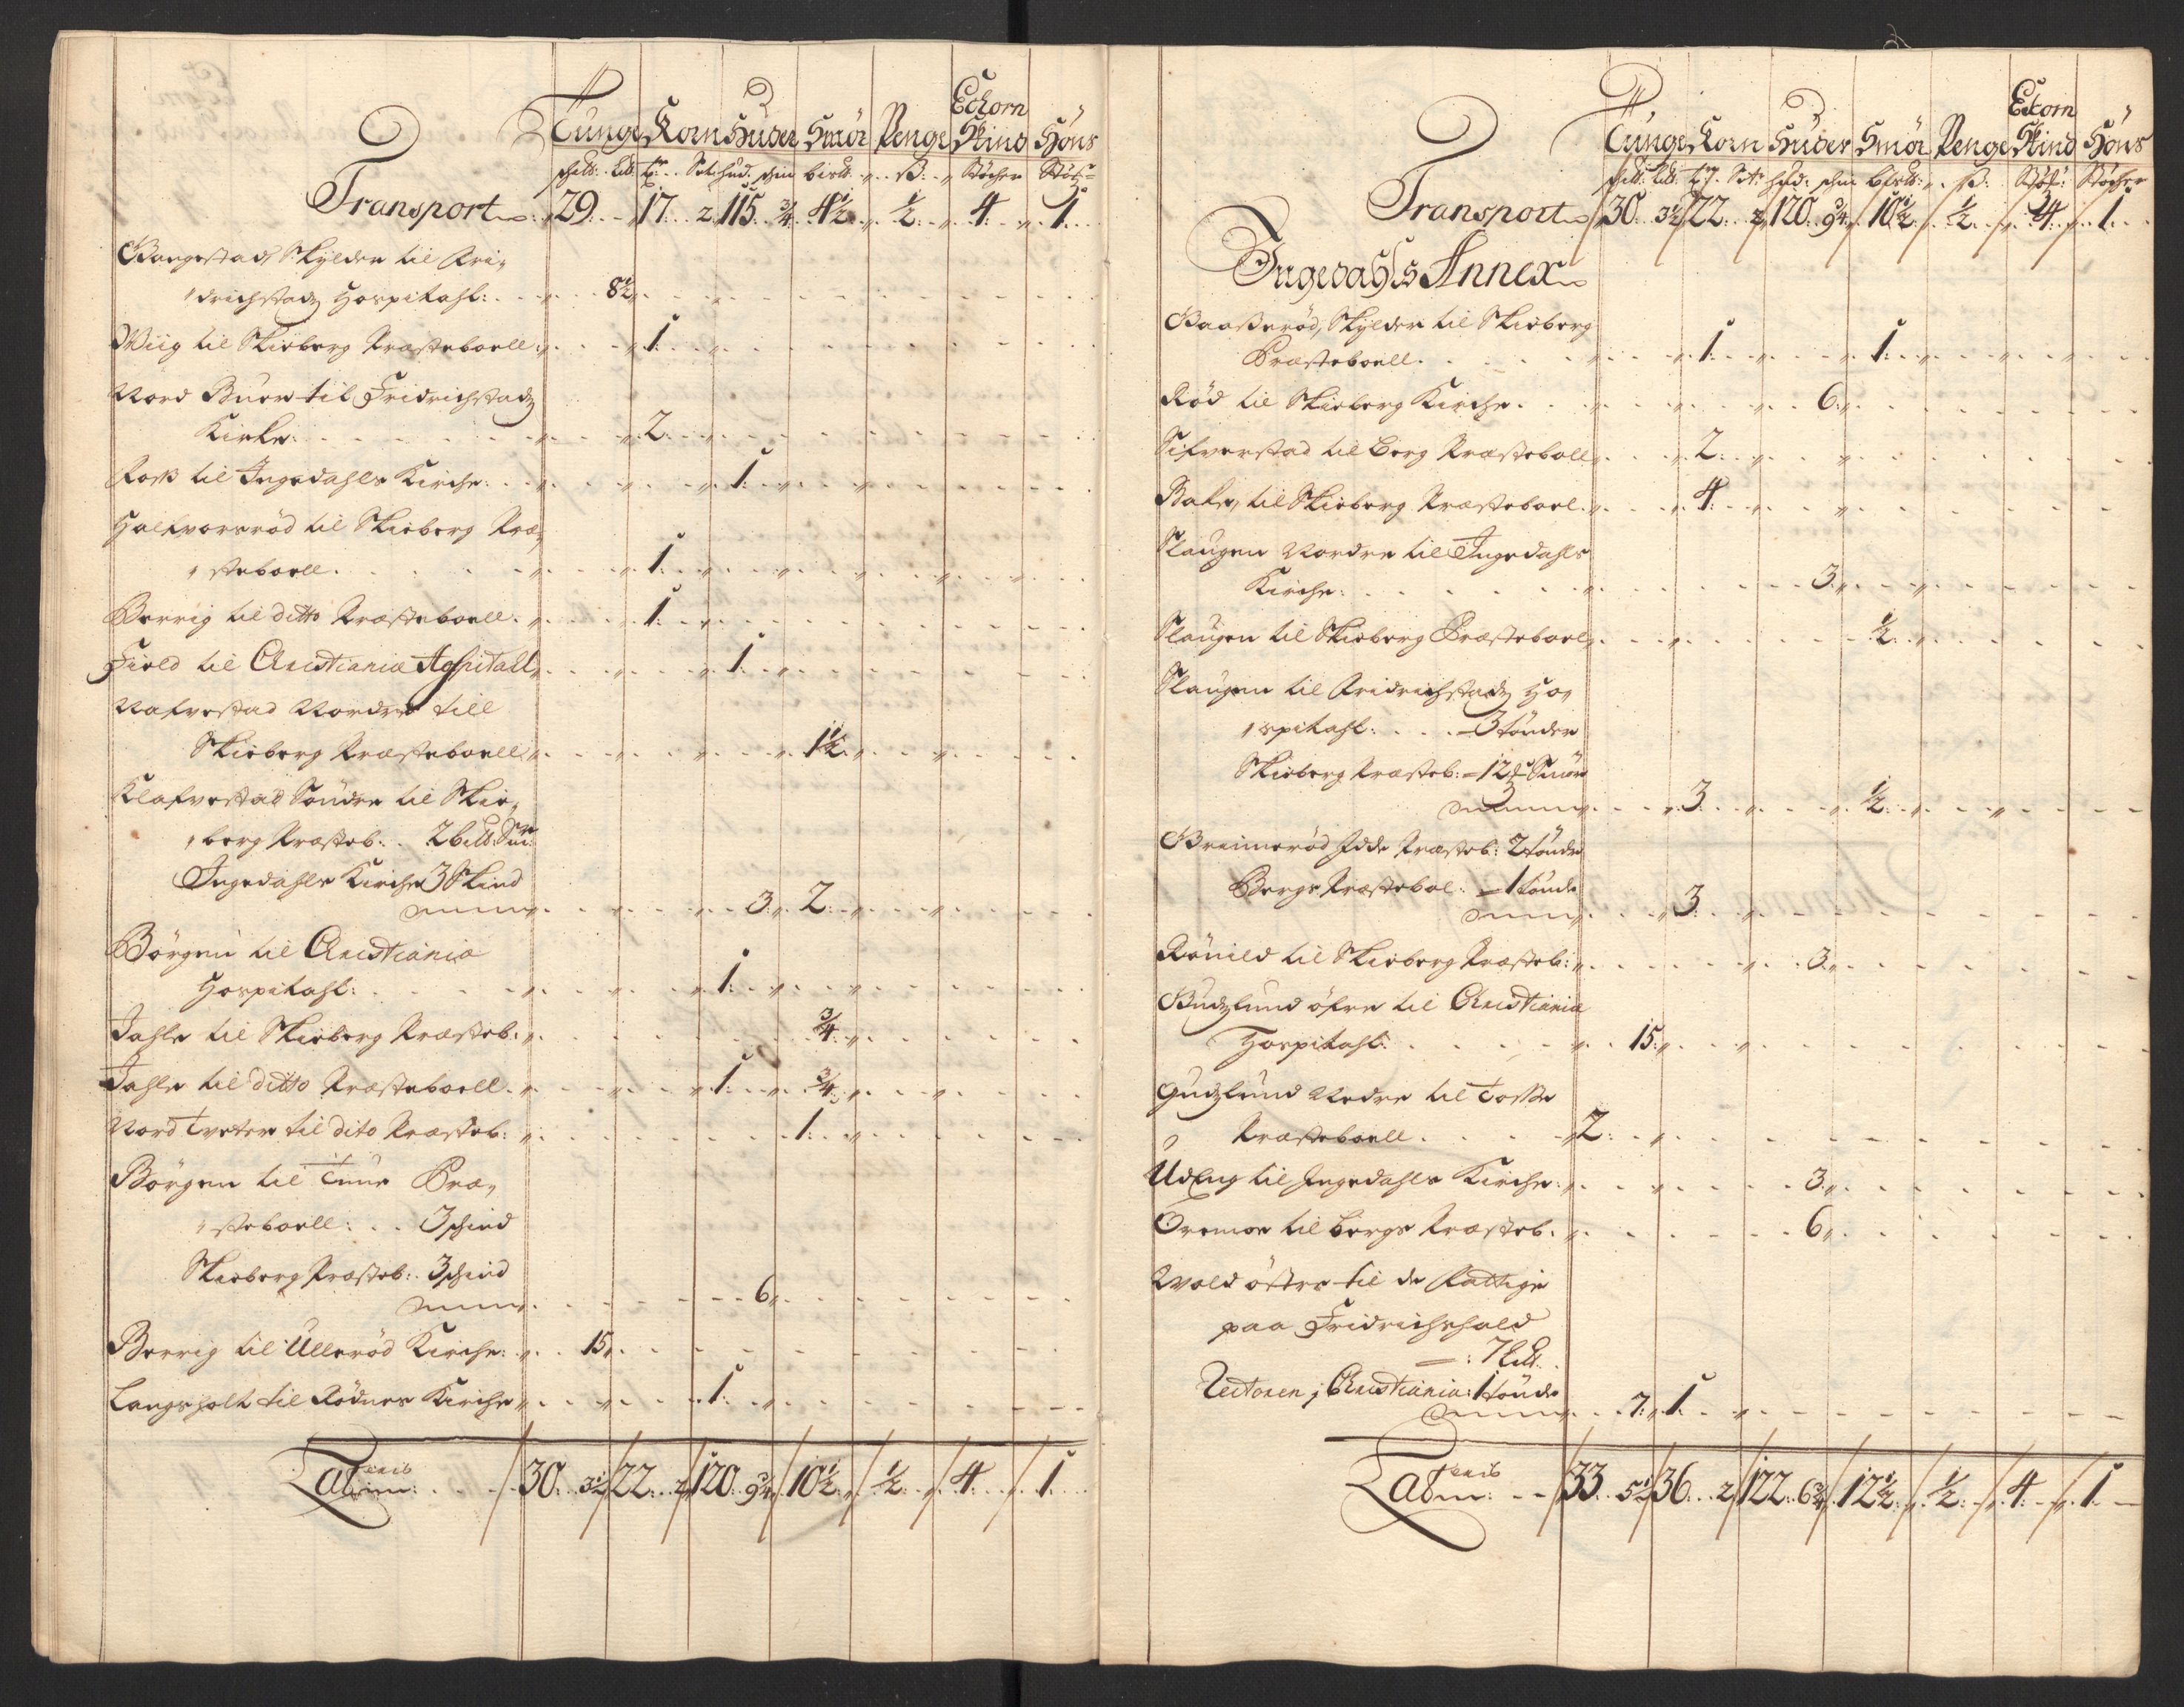 Tunge Korn Huder Smör Penge Echorn Skind Höns
sch℔: l℔: Tr: Set: hud: schin bir℔: ß: Stöcher Stöch:
Transport 29 17 2 115 3/4 4½ ½ 4 1
Borgestad Skylder til Fri„
„drichstadz Hospitahl: 8½
Wiig til Skieberg Præsteboell: 1
Nord Buer til Fridrichstadz
Kirke: 2
Foss til Ingedahls Kirche: 1
Halfvorsröd til Skieberg Præ„
„steboell. 1
Berrig til ditto Præsteboell. 1
Field til Christiania Hospitall 1
Nafvestad Nordre till
Skieberg Præsteboell 1½
Klafvestad Söndre til Skie„
„berg Præsteb: 2 b℔: Sm:
Ingedahls Kirche 3 Skind
3 2
Börgen til Christiania
Hospitahl: 1
Dahle til Skieberg Præsteb: 3/4
Dahle til ditto Præsteboell. 1 3/4
Nord Tveter til dito Præsteb: 1
Börgen til Tune Præ„
„steboell: 3 schind
Skieberg Præsteb: 3 schind
6
Berrig til Ulleröd Kirche: 15
Langsholt til Rödnes Kirche 1
Lateris 30 3½ 22 2 120 9¾ 10½ ½ 4 1
Tunge Korn Huder Smör Penge Ekorn Skind Höns
sch℔: l℔: Tr: Set: hud: schin bir℔: ß: Stöch: Stöcher
Transport 30 3½ 22 2 120 9¾ 10½ ½ 4 1
Ingedahls Annex
Baasseröd, Skylder til Skieberg
Præsteboell. 1 1
Röd til Skieberg Kirche. 6
Sifverstad til Berg Præsteboll 2
Bakke, til Skieberg Præsteboel. 4
Slaugen Nordre til Ingedahls
Kirche: 3
Slaugen til Skieberg Præsteboel ½
Slaugen til Fridrichstadz Ho„
„spitahl: 3 tönder
Skieberg Præsteb: 12 ℔ Smör
3 ½
Grimeröd Idde Præsteb: 2 tönder
Bergs Præstebol: 1 tönde
3
Rönild til Skieberg Præsteb: 3
Gudzlund öfre til Christiania
Hospitahl: 15
Gudzlund Nedre til Tosse
Præsteboell. 2
UdEng til Ingedahls Kirche: 3
Oremoe til Bergs Præsteb. 6
Wold östre til de Fattige
paa Fridrichshald
7 l℔.
Lectoren i Christiania: 1 tönde
7 1
Lateris 33 5½ 36 2 122 6¾ 12½ ½ 4 1